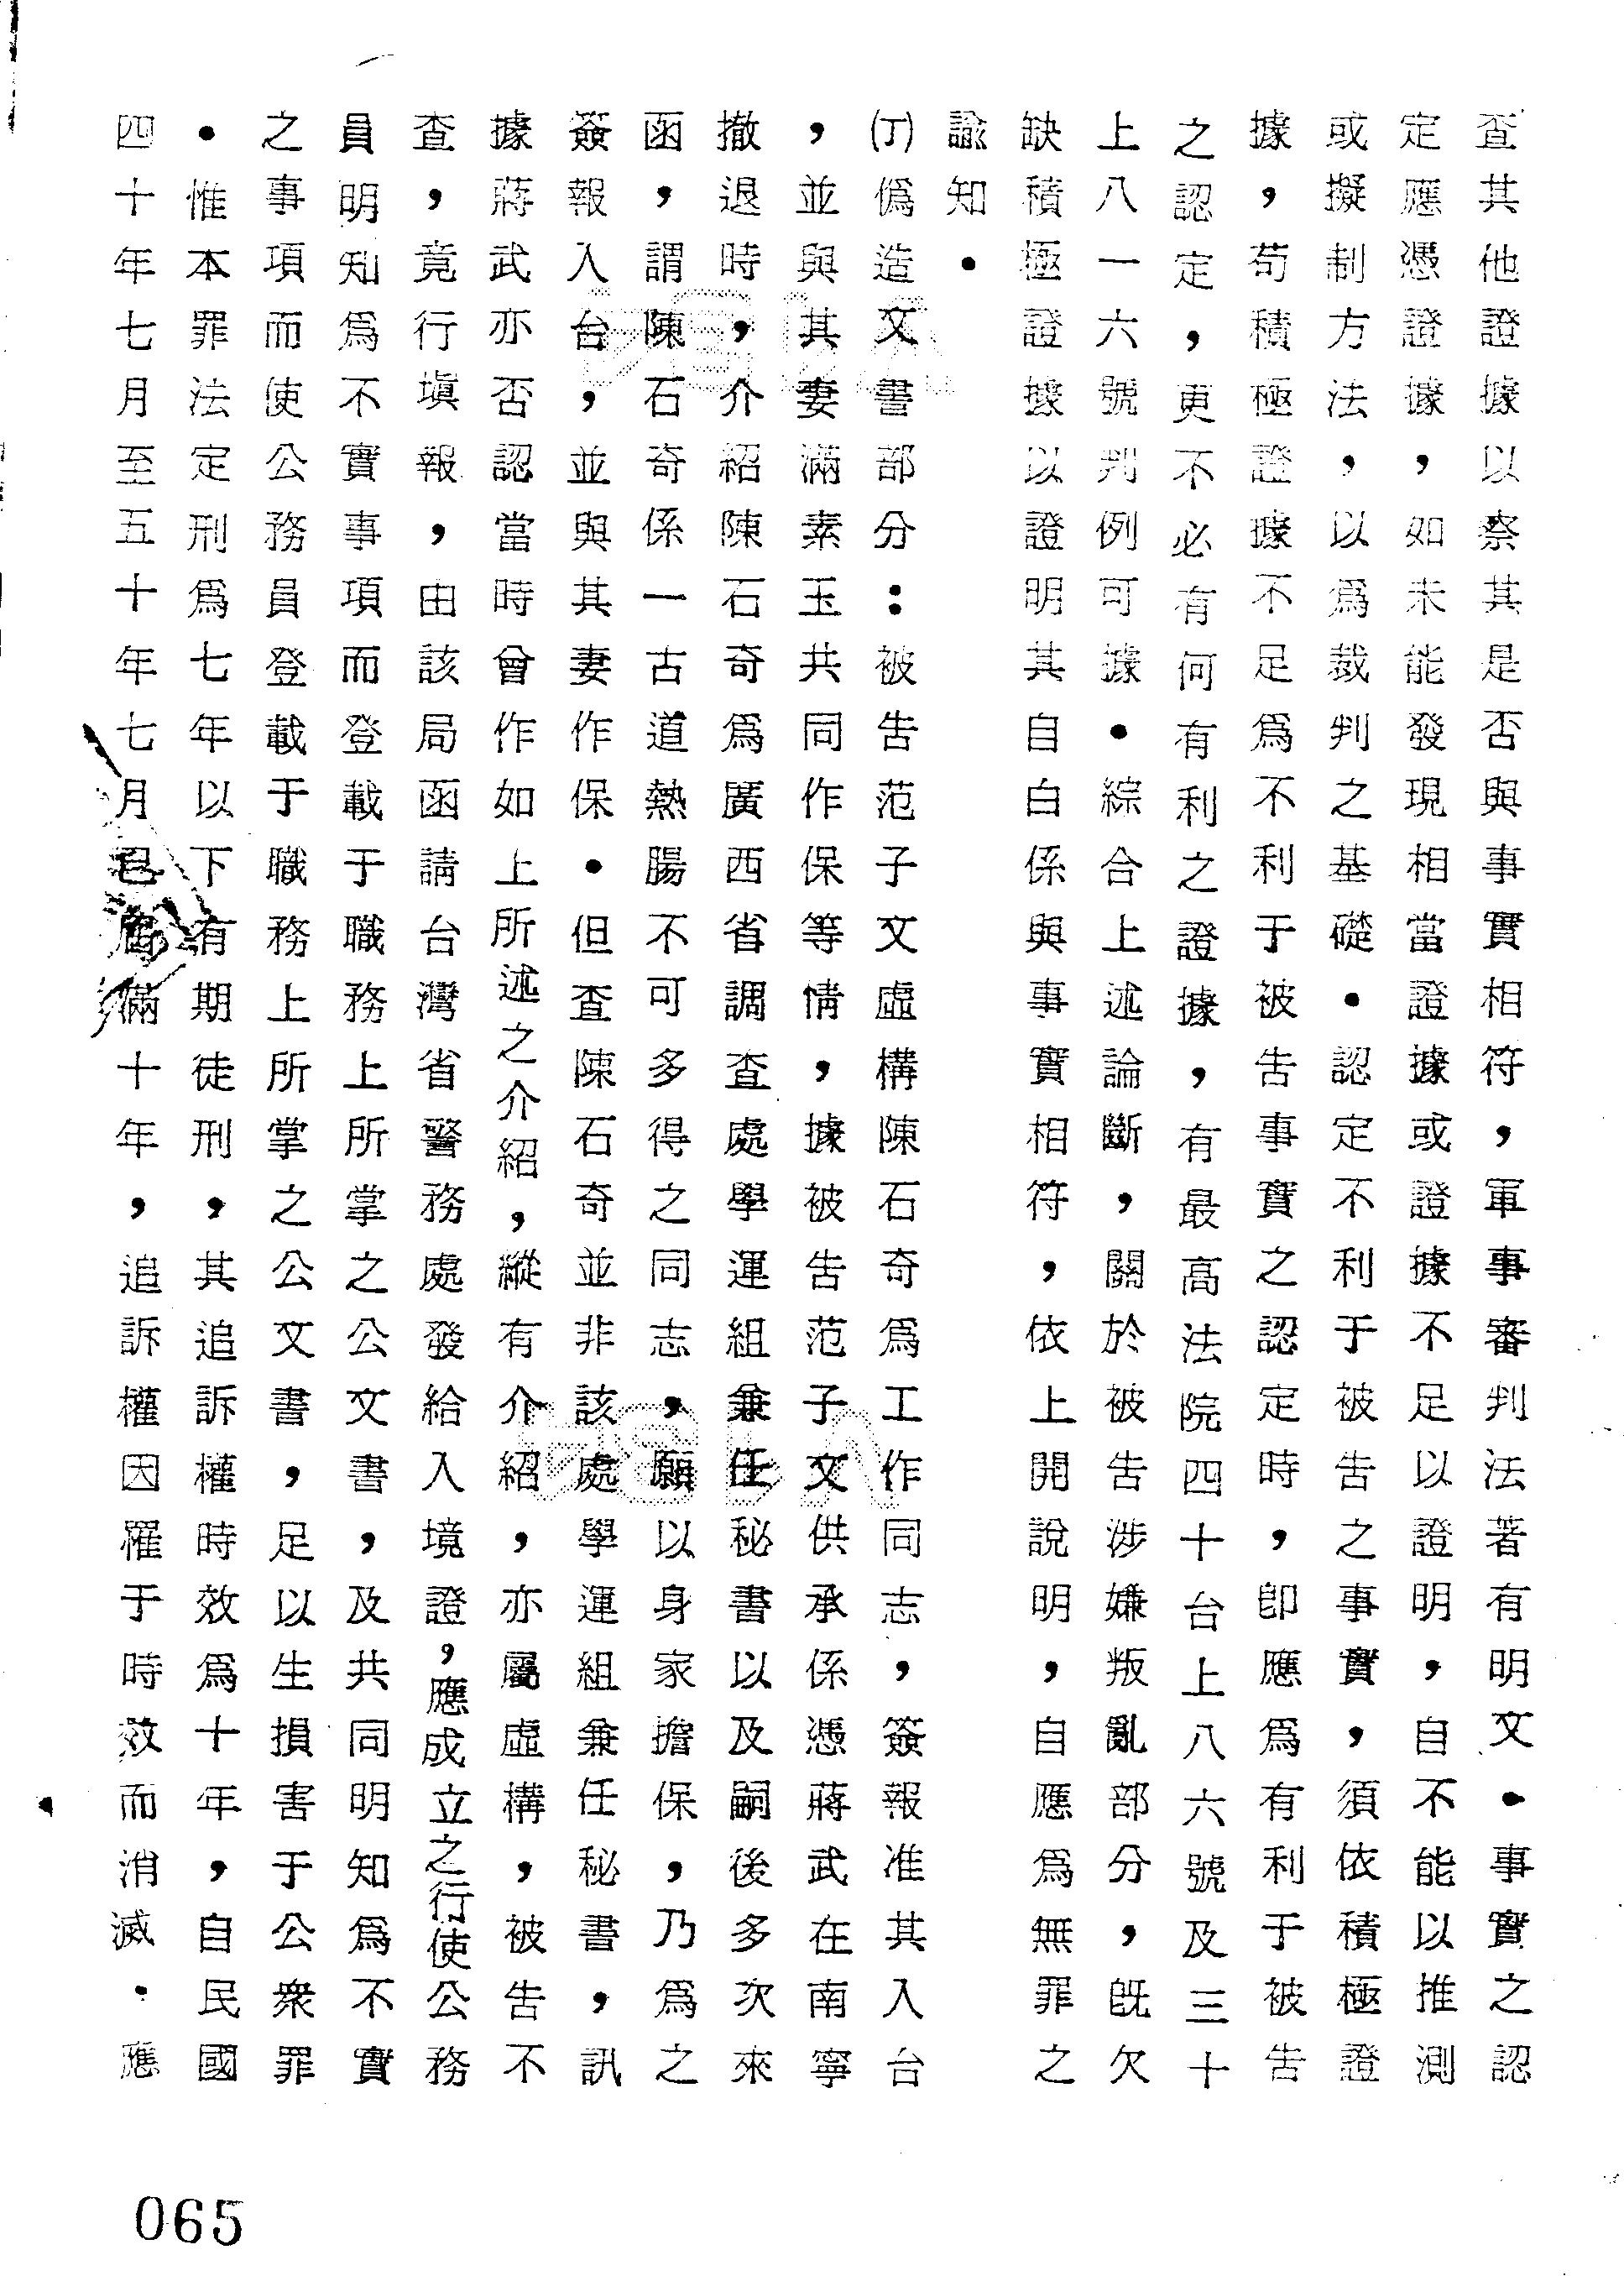 查其他證據以察其是否與事實相符，軍事審判法著有明文．事實之認
定應憑證據，如未能發現相當證據或證據不足以證明，自不能以推測
或擬制方法，以爲裁判之基礎．認定不利于被告之事實，須依積極證
據，苟積極證據不足爲不利于被告事實之認定時，卽應爲有利于被告
之認定，更不必有何有利之證據，有最高法院四十台上八六號及三十
上八一六號判例可據．綜合上述論斷，關於被告涉嫌叛亂部分，旣欠
缺積極證據以證明其自白係與事實相符，依上開說明，自應爲無罪之
諭知．
㈣僞造文書部分：被告范子文虛構陳石奇爲工作同志，簽報准其入台
，並與其妻滿素玉共同作保等情，據被告范子文供承係憑蔣武在南寧
撤退時，介紹陳石奇爲廣西省調查處學運組兼任秘書以及嗣後多次來
函，謂陳石奇係一古道熱腸不可多得之同志，願以身家擔保，乃爲之
簽報入台，並與其妻作保．但查陳石奇並非該處學運組兼任秘書，訊
據蔣武亦否認當時曾作如上所述之介紹，縱有介紹，亦屬虛構，被告不
查，竟行塡報，由該局函請台灣省警務處發給入境證，應成立之行使公務
員明知爲不實事項而登載于職務上所掌之公文書，及共同明知爲不實
之事項而使公務員登載于職務上所掌之公文書，足以生損害于公衆罪
．惟本罪法定刑爲七年以下有期徒刑，其追訴權時效爲十年，自民國
四十年七月至五十年七月已屆滿十年，追訴權因罹于時效而消滅．應
065